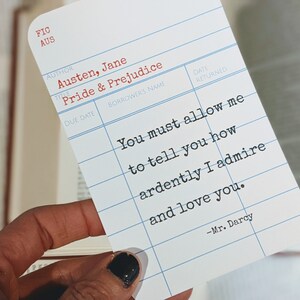 FIC
AUS
AUTHOR
Austen, Jane
Pride & Prejudice
DUE DATE
BORROWERS NAME
DATE RETURNED
You must allow me
to tell you how
ardently I admire
and love you.
-Mr. Darcy